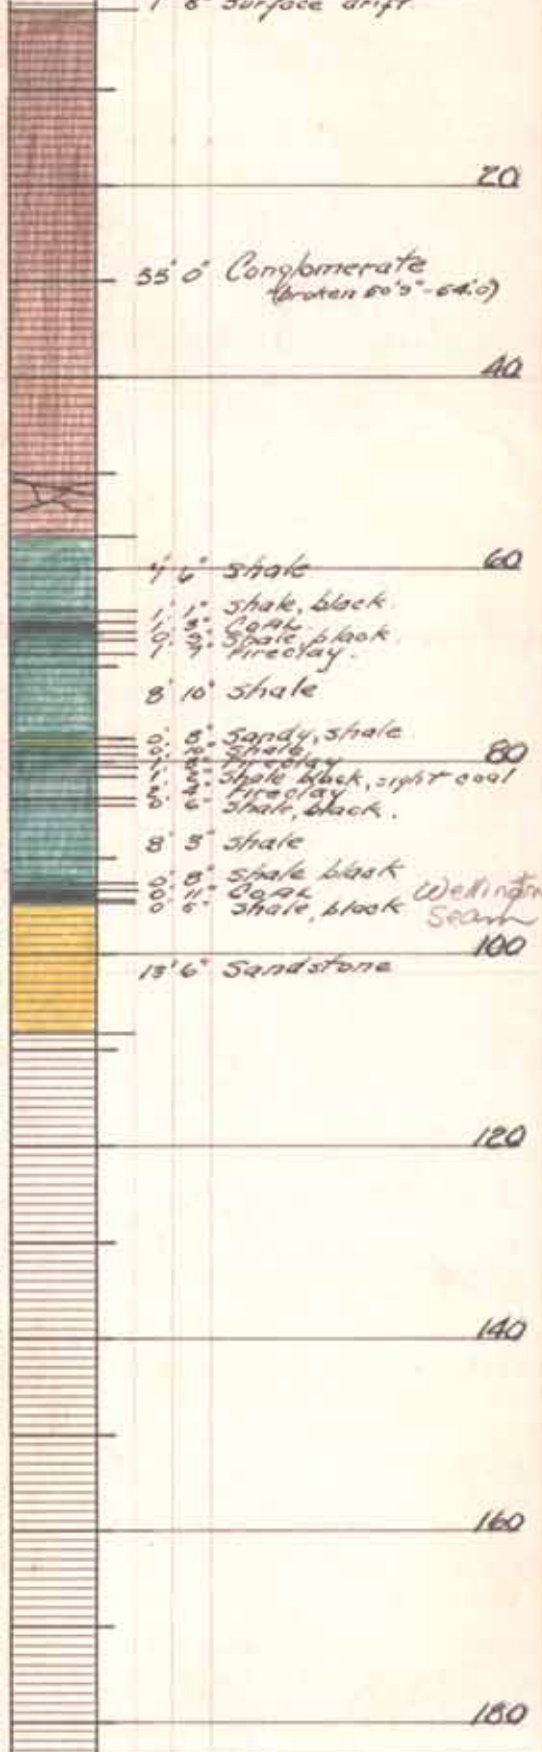 1' 8" Surface drift
20
55' 0" Conglomerate
(broken 50'9"-54'.0)
40
60
7' 6" Shale
1' 1" Shale, black.
1' 3" Coal
0' 9" Shale, black.
1' 7" Fireclay.
8' 10" Shale
0' 8" Sandy, shale
0' 10" Shale,
80
Fireclay
Shale black, sight coal
Fireclay
6" Shale, black.
8' 3" Shale
0' 8" Shale black
0' 11" Coal
Wellington
Seam
0' 5" Shale, black
100
13' 6" Sandstone
120
140
160
180